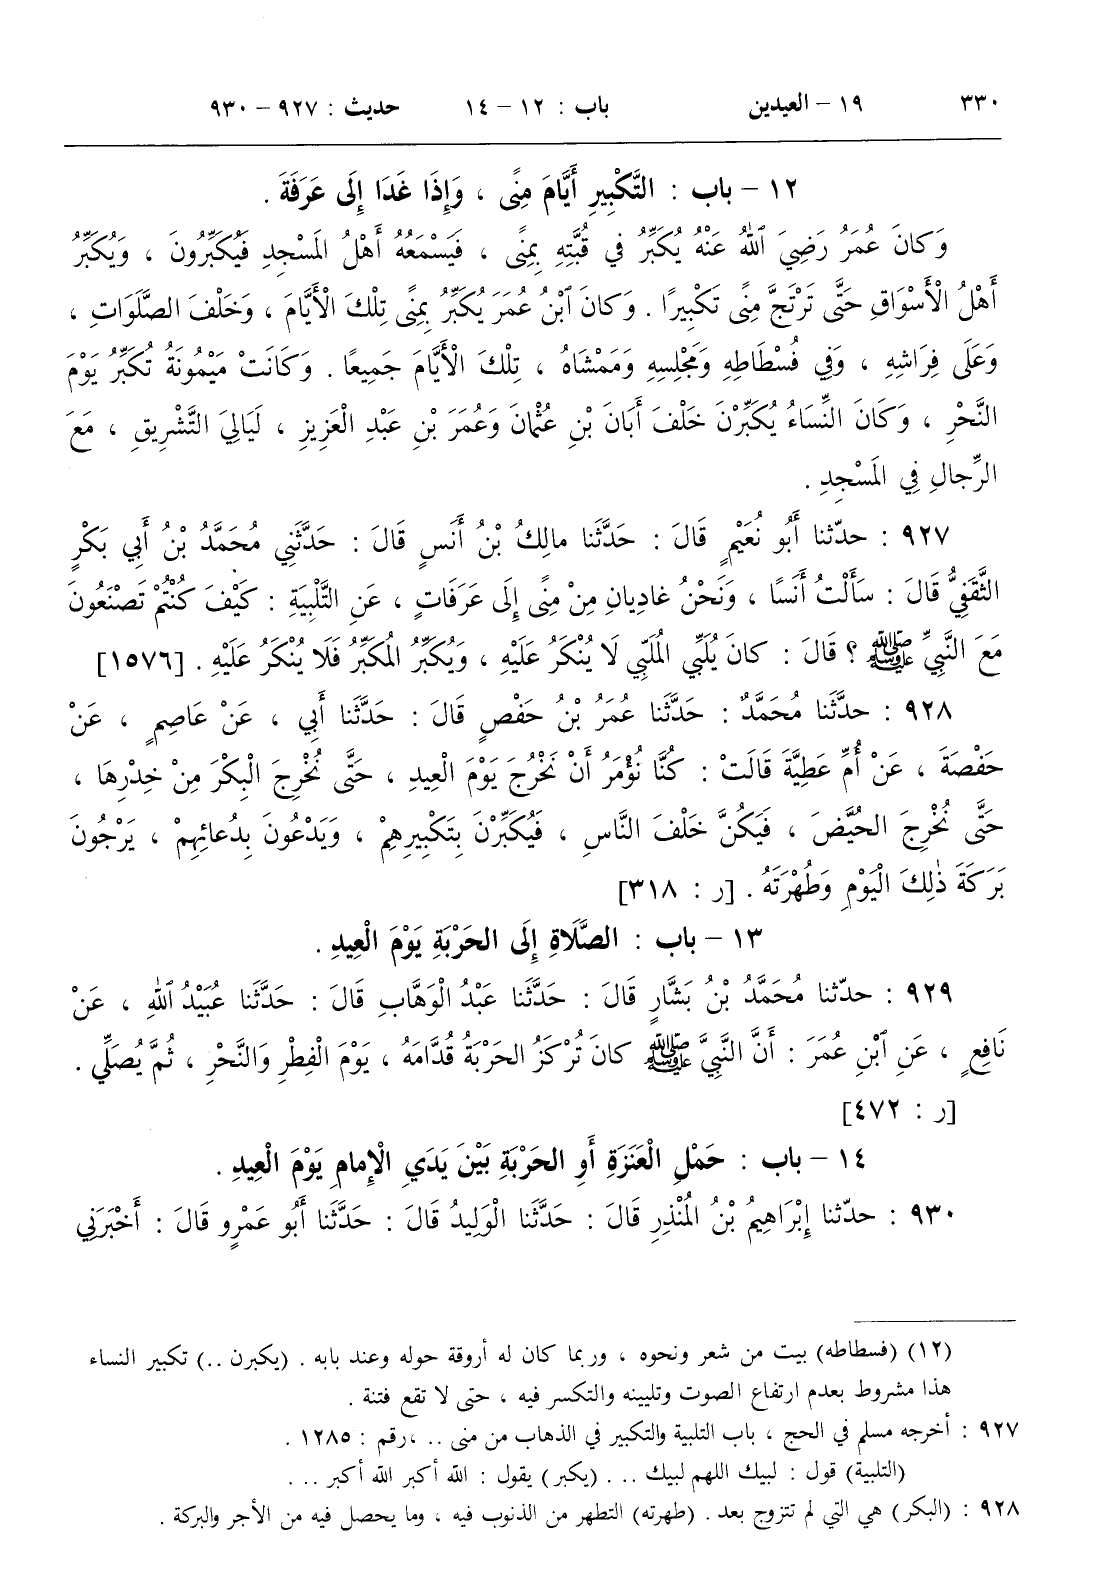 ٣٣٠ ١٩ – العيدين باب : ١٢ – ١٤ حديث : ٩٢٧ – ٩٣٠
١٢ – باب : التَّكْبِيرِ أَيَّامَ مِنًى ، وَإِذَا غَدَا إِلَى عَرَفَةَ .
وَكانَ عُمَرُ رَضِيَ ٱللهُ عَنْهُ يُكَبِّرُ في قُبَّتِهِ بِمِنًى ، فَيَسْمَعُهُ أَهْلُ المَسْجِدِ فَيُكَبِّرُونَ ، وَيُكَبِّرُ
أَهْلُ الْأَسْوَاقِ حَتَّى تَرْتَجَّ مِنًى تَكْبِيرًا . وَكانَ ٱبْنُ عُمَرَ يُكَبِّرُ بِمِنًى تِلْكَ الْأَيَّامَ ، وَخَلْفَ الصَّلَوَاتِ ،
وَعَلَى فِرَاشِهِ ، وَفي فُسْطَاطِهِ وَمَجْلِسِهِ وَمَمْشَاهُ ، تِلْكَ الْأَيَّامَ جَمِيعًا . وَكَانَتْ مَيْمُونَةُ تُكَبِّرُ يَوْمَ
النَّحْرِ ، وَكَانَ النِّسَاءُ يُكَبِّرْنَ خَلْفَ أَبَانَ بْنِ عُثْمَانَ وَعُمَرَ بْنِ عَبْدِ الْعَزِيزِ ، لَيَالِيَ التَّشْرِيقِ ، مَعَ
الرِّجالِ فِي المَسْجِدِ .
٩٢٧ : حدّثنا أَبُو نُعَيْمٍ قَالَ : حَدَّثَنا مالِكُ بْنُ أَنَسٍ قَالَ : حَدَّثَنِي مُحَمَّدُ بْنُ أَبِي بَكْرٍ
الثَّقَفِيُّ قَالَ : سَأَلْتُ أَنَسًا ، وَنَحْنُ غادِيانِ مِنْ مِنًى إِلَى عَرَفَاتٍ ، عَنِ التَّلْبِيَةِ : كَيْفَ كُنْتُمْ تَصْنَعُونَ
مَعَ النَّبِيِّ ﷺ ؟ قَالَ : كانَ يُلَبِّي المُلَبِّي لَا يُنْكَرُ عَلَيْهِ ، وَيُكَبِّرُ المُكَبِّرُ فَلَا يُنْكَرُ عَلَيْهِ . [١٥٧٦]
٩٢٨ : حدَّثَنا مُحَمَّدٌ : حَدَّثَنا عُمَرُ بْنُ حَفْصٍ قَالَ : حَدَّثَنا أَبِي ، عَنْ عَاصِمٍ ، عَنْ
حَفْصَةَ ، عَنْ أُمِّ عَطِيَّةَ قَالَتْ : كُنَّا نُؤْمَرُ أَنْ نَخْرُجَ يَوْمَ الْعِيدِ ، حَتَّى نُخْرِجَ الْبِكْرَ مِنْ خِدْرِهَا ،
حَتَّى نُخْرِجَ الحُيَّضَ ، فَيَكُنَّ خَلْفَ النَّاسِ ، فَيُكَبِّرْنَ بِتَكْبِيرِهِمْ ، وَيَدْعُونَ بِدُعائِهِمْ ، يَرْجُونَ
بَرَكَةَ ذٰلِكَ الْيَوْمِ وَطُهْرَتَهُ . [ر : ٣١٨]
١٣ – باب : الصَّلَاةِ إِلَى الحَرْبَةِ يَوْمَ الْعِيدِ .
٩٢٩ : حدّثنا مُحَمَّدُ بْنُ بَشَّارٍ قَالَ : حَدَّثَنا عَبْدُ الْوَهَّابِ قَالَ : حَدَّثَنا عُبَيْدُ ٱللهِ ، عَنْ
نَافِعٍ ، عَنِ ٱبْنِ عُمَرَ : أَنَّ النَّبِيَّ ﷺ كانَ تُرْكَزُ الحَرْبَةُ قُدَّامَهُ ، يَوْمَ الْفِطْرِ وَالنَّحْرِ ، ثُمَّ يُصَلِّي .
[ر : ٤٧٢]
١٤ – باب : حَمْلِ الْعَنَزَةِ أَوِ الحَرْبَةِ بَيْنَ يَدَيِ الْإِمامِ يَوْمَ الْعِيدِ .
٩٣٠ : حدّثنا إِبْرَاهِيمُ بْنُ المُنْذِرِ قَالَ : حَدَّثَنا الْوَلِيدُ قَالَ : حَدَّثَنا أَبُو عَمْرٍو قَالَ : أَخْبَرَنِي
(١٢) (فسطاطه) بيت من شعر ونحوه ، وربما كان له أروقة حوله وعند بابه . (يكبرن ..) تكبير النساء
هذا مشروط بعدم ارتفاع الصوت وتليينه والتكسر فيه ، حتى لا تقع فتنة .
٩٢٧ : أخرجه مسلم في الحج ، باب التلبية والتكبير في الذهاب من منى .. ،رقم : ١٢٨٥ .
(التلبية) قول : لبيك اللهم لبيك ... (يكبر) يقول : الله أكبر الله أكبر ...
٩٢٨ : (البكر) هي التي لم تتزوج بعد . (طهرته) التطهر من الذنوب فيه ، وما يحصل فيه من الأجر والبركة .